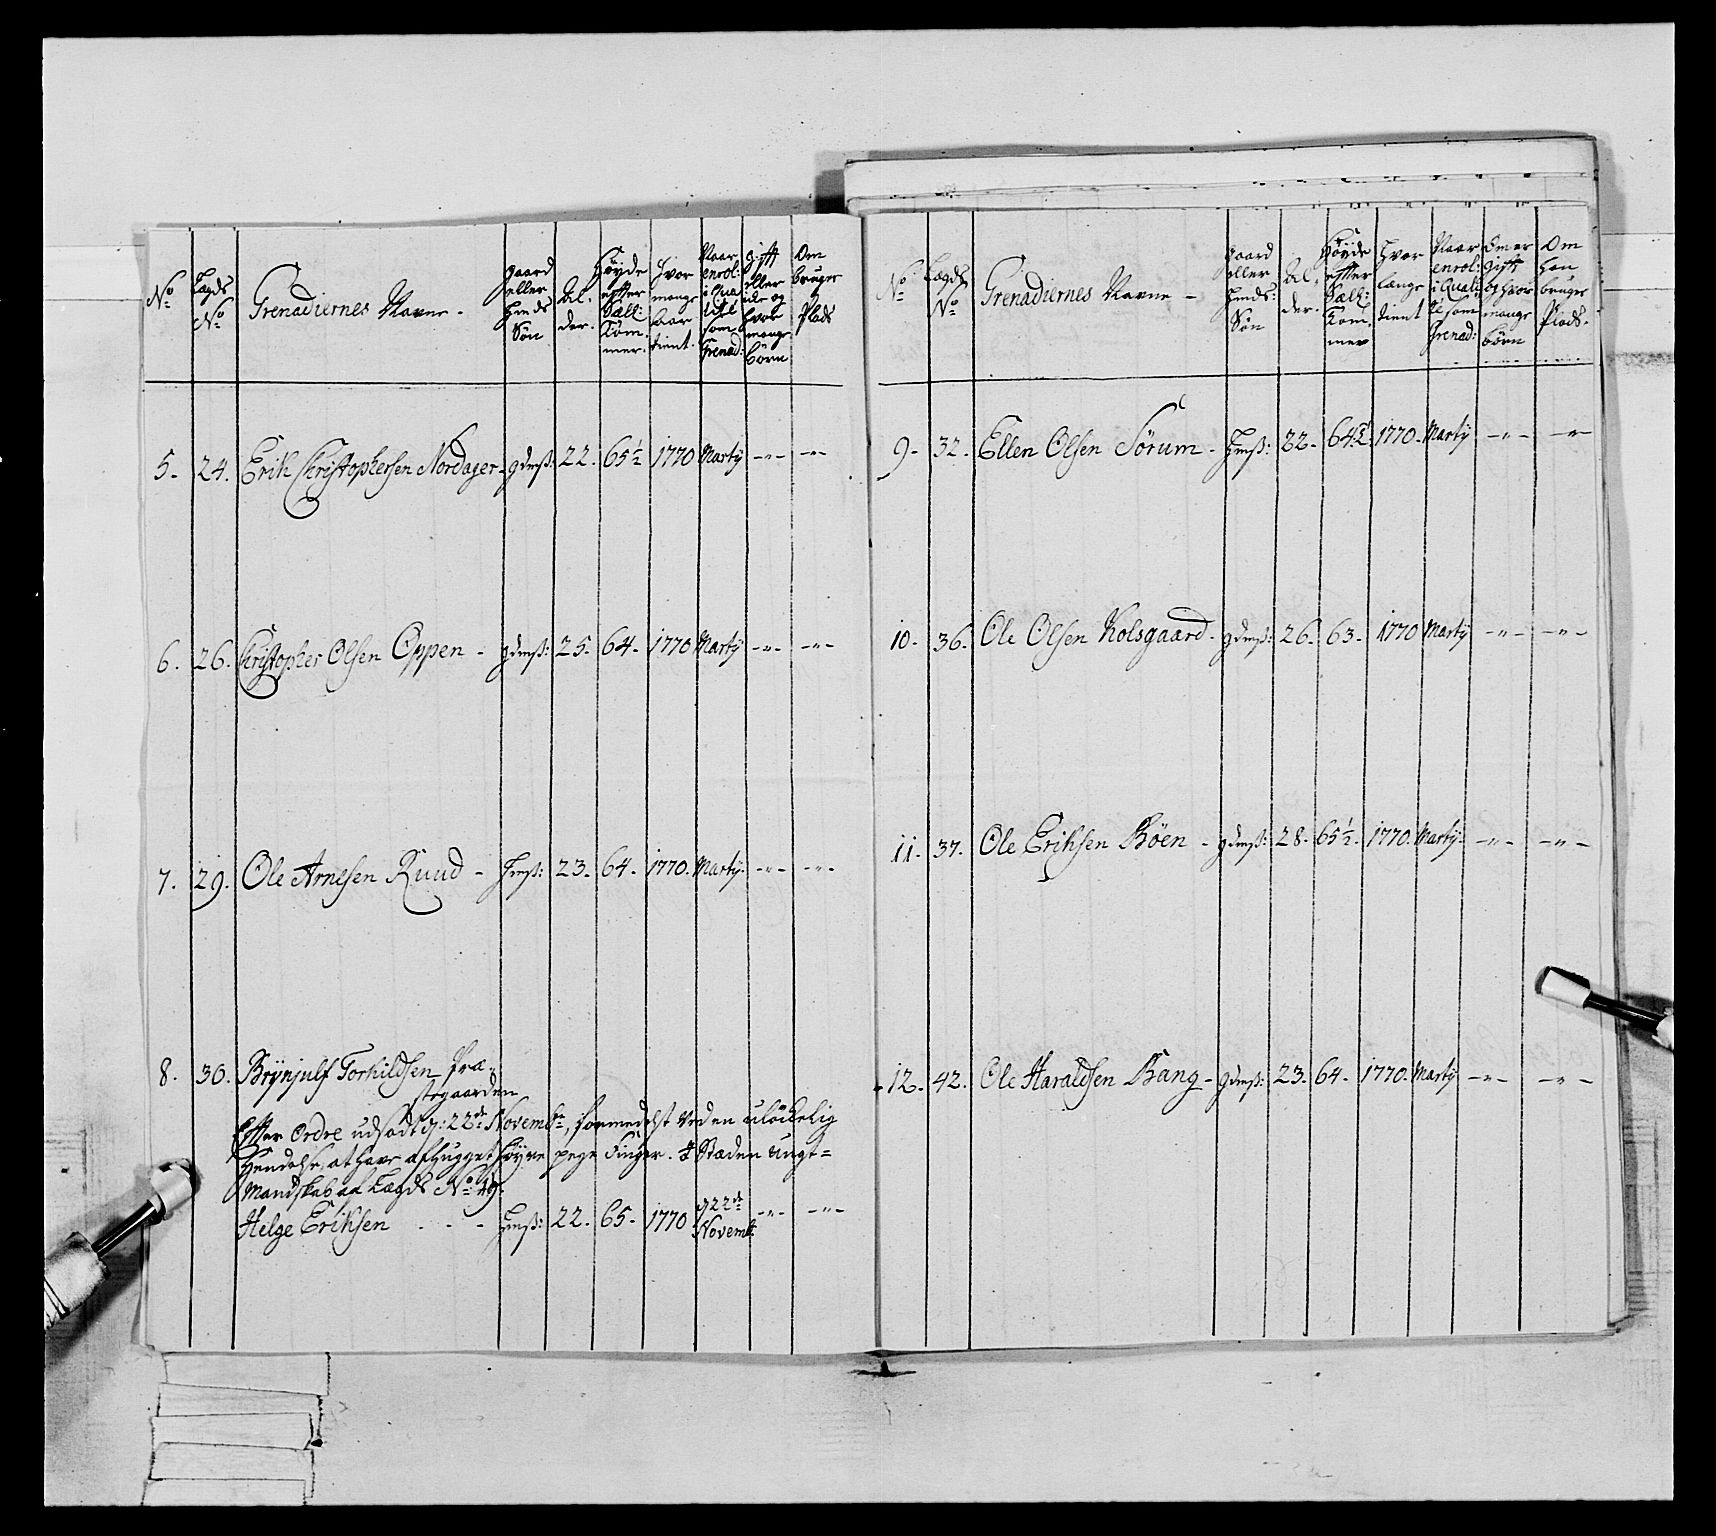 No
Lægds No
Grenadiernes Navne -
gaard eller Huusmds Søn
Al, der.
Høyde effter Sæll: Tommer.
Hvor mange Aar tient.
Naar enrol: i Qualitet som Grenad:
gift eller ide og hvor mange børn
Om bruger Plads
5. 24. Erik Christophersen Nordager - gdmß: 22. 65½ 1770 Marty -"- -"-
6. 26. Christopher Olsen Oppen - gdmß: 25. 64. 1770 Marty -"- -"-
7. 29. Ole Arnesen Ruud - Hmß: 23. 64. 1770. Marty. -"- -"-
8. 30. Brynjulf Torkildsen Præ-
stegaarden
Effter Ordre udsadt d: 22de Novembr, formedelst ved en ulökelig
Hendelse at have afhugget höyre pege Finger. I Stæden ungt=
Mandskab af Lægds No 49.
Helge Eriksen - - - Hmß: 22. 65. 1770 d 22de Novemb: -"- -"-
No
Lægds No
Grenadiernes Navne -
gaard eller Hmds: Søn
Al, der.
Høyde effter Sæll: Tommer
Hvor længe tient
Naar enrol: i Qualite som Grenad:
Om er gift og hvor mange børn
Om han bruger Plads.
9. 32. Ellen Olsen Sørum - Hmß: 22. 64¾ 1770. Marty -"- -"-
10. 36. Ole Olsen Kolsgaard - gdmß: 26. 63. 1770 Marty -"- -"-
11. 37. Ole Eriksen Böen - gdmß: 28. 65½. 1770. Marty. -"- -"-
12. 42. Ole Haraldsen Bang - gdmß: 23. 64. 1770. Marty -"- -"-